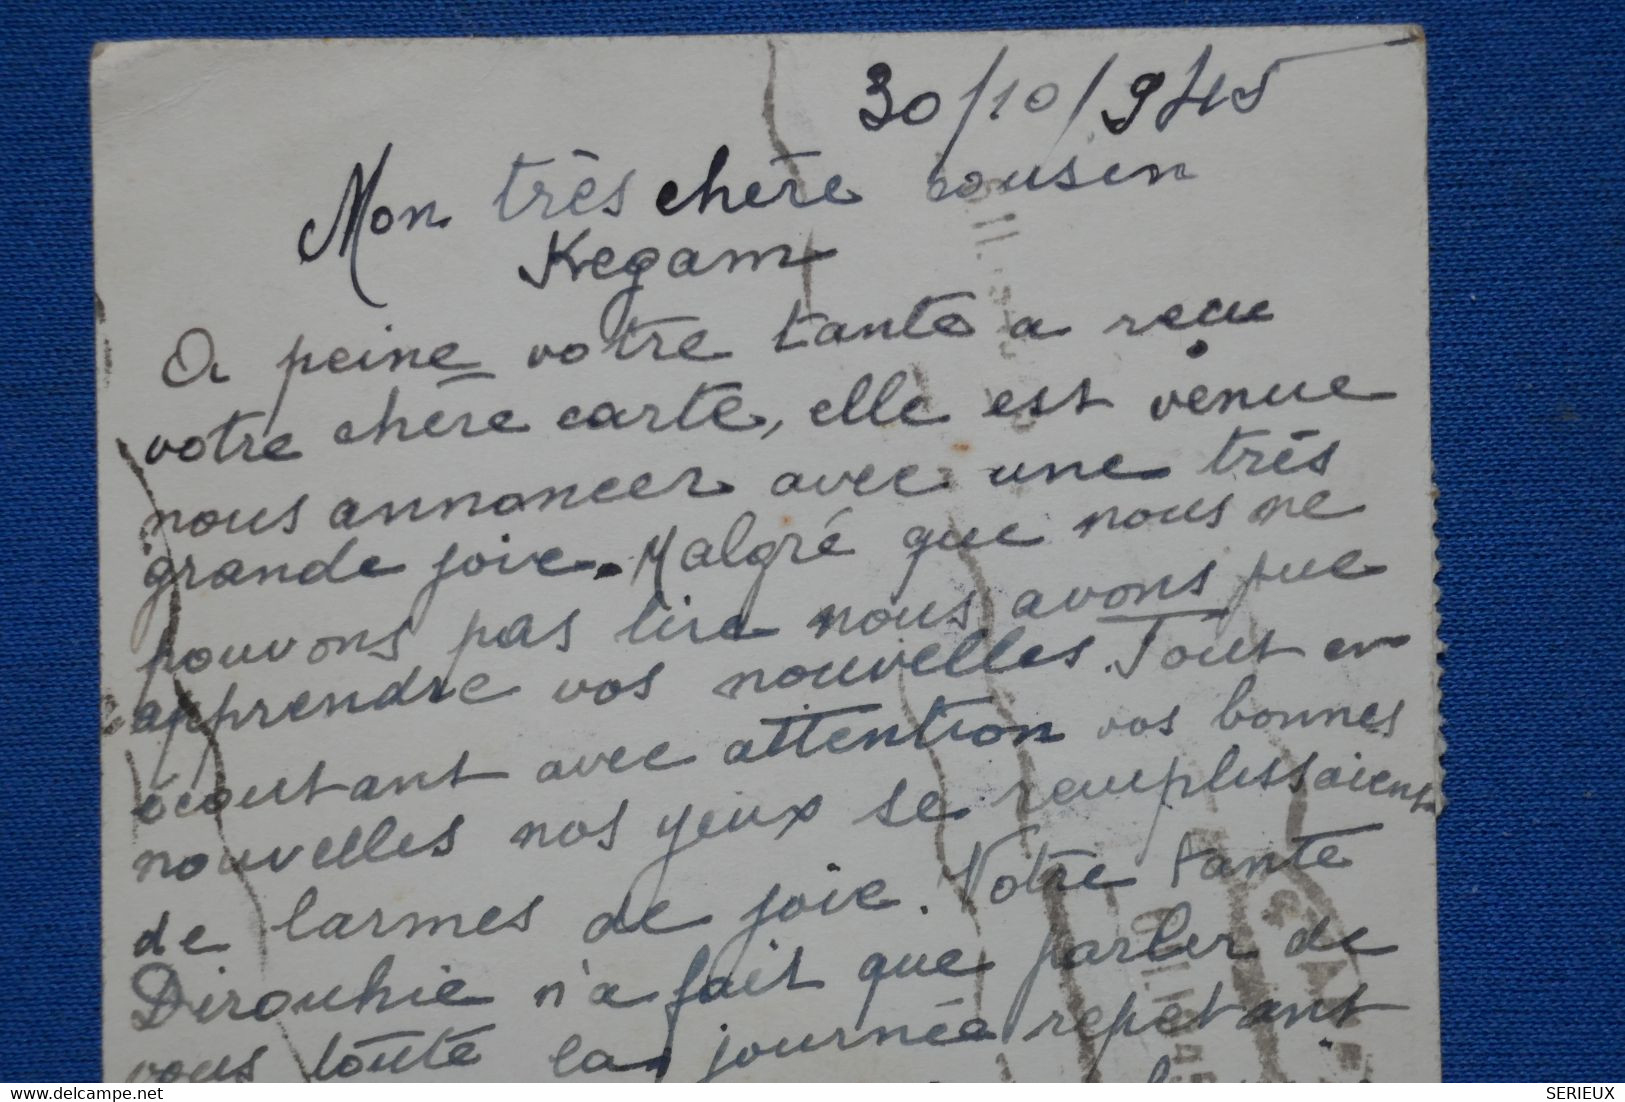 30/10/945
Mon très chère cousin
Kegam
A peine votre tante a reçue
votre chère carte, elle est venue
nous annoncer avec une très
grande joie. Malgré que nous ne
pouvons pas lire nous avons pue
apprendre vos nouvelles. Tout en
écoutant avec attention vos bonnes
nouvelles nos yeux se remplissaient
de larmes de joie. Votre tante
Dirouhie n'a fait que parler de
vous toute la journée repetant
SERIEUX
delcampe.net